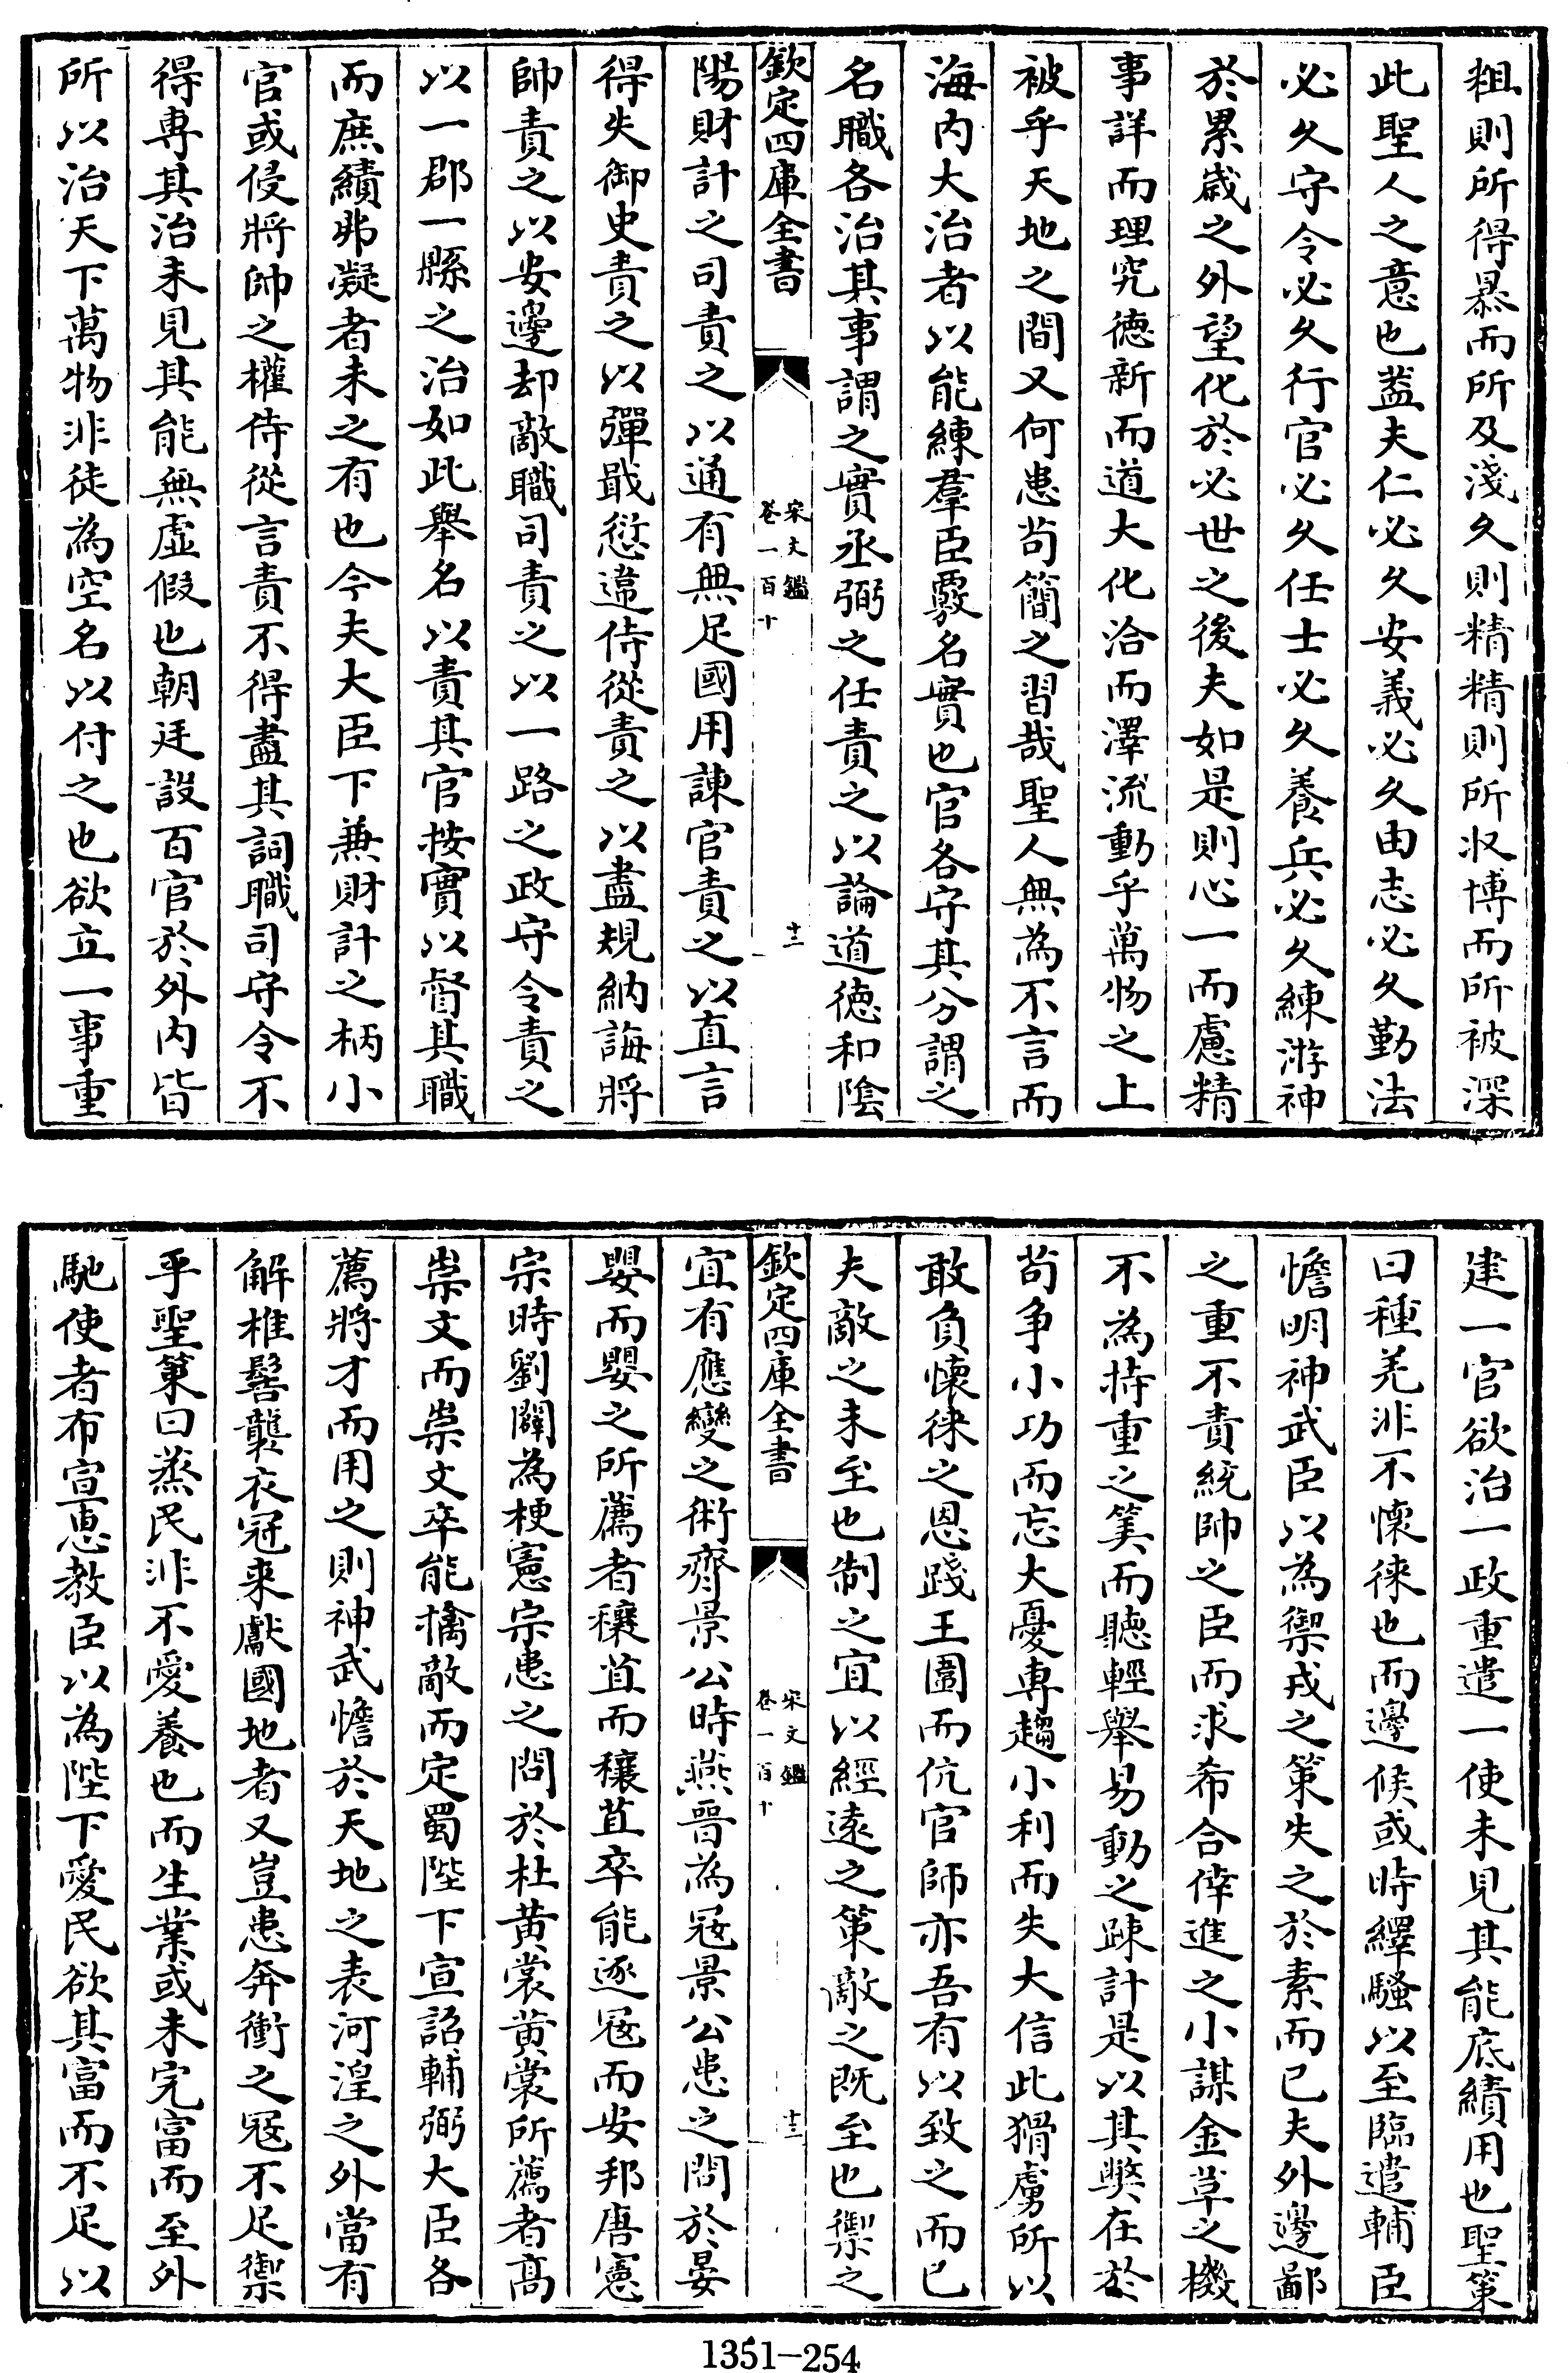 粗則所得暴而所及淺久則精精則所収博而所被深
此聖人之意也葢夫仁必久安義必久由志必久勤法
必久守令必久行官必久任士必久養兵必久練游神
於累歲之外望化於必世之後夫如是則心一而慮精
事詳而理究德新而道大化洽而澤流動乎萬物之上
被乎天地之間又何患茍簡之習哉聖人無為不言而
海内大治者以能練羣臣覈名實也官各守其分謂之
名職各治其事謂之實丞弼之任責之以論道德和陰
欽定四庫全書
宋文鑑
卷一百十
十二
陽財計之司責之以通有無足國用諫官責之以直言
得失御史責之以彈戢愆違侍從責之以盡規納誨將
帥責之以安邊却敵職司責之以一路之政守令責之
以一郡一縣之治如此舉名以責其官按實以督其職
而庶績弗凝者未之有也今夫大臣下兼財計之柄小
官或侵將帥之權侍從言責不得盡其詞職司守令不
得專其治未見其能無虛假也朝廷設百官於外内皆
所以治天下萬物非徒為空名以付之也欲立一事重
建一官欲治一政重遣一使未見其能底績用也聖策
曰種羌非不懷徠也而邊候或時繹騷以至臨遣輔臣
憺明神武臣以為禦戎之策失之於素而已夫外邊鄙
之重不責統帥之臣而求希合倖進之小謀金草之機
不為持重之筭而聽輕舉易動之踈計是以其獘在於
茍争小功而忘大憂專趨小利而失大信此猾虜所以
敢負懷徠之恩踐王圉而伉官師亦吾有以致之而已
夫敵之未至也制之宜以經遠之策敵之既至也禦之
欽定四庫全書
宋文鑑
卷一百十
十三
宜有應變之術齊景公時燕晉為冦景公患之問於晏
嬰而嬰之所薦者穰苴而穰苴卒能逐冦而安邦唐憲
宗時劉闢為梗憲宗患之問於杜黄裳黄裳所薦者髙
崇文而崇文卒能擒敵而定蜀陛下宣詔輔弼大臣各
薦將才而用之則神武憺於天地之表河湟之外當有
解椎髻襲衣冠来獻國地者又豈患奔衝之冦不足禦
乎聖策曰烝民非不愛養也而生業或未完富而至外
馳使者布宣恵教臣以為陛下愛民欲其富而不足以
1351-254